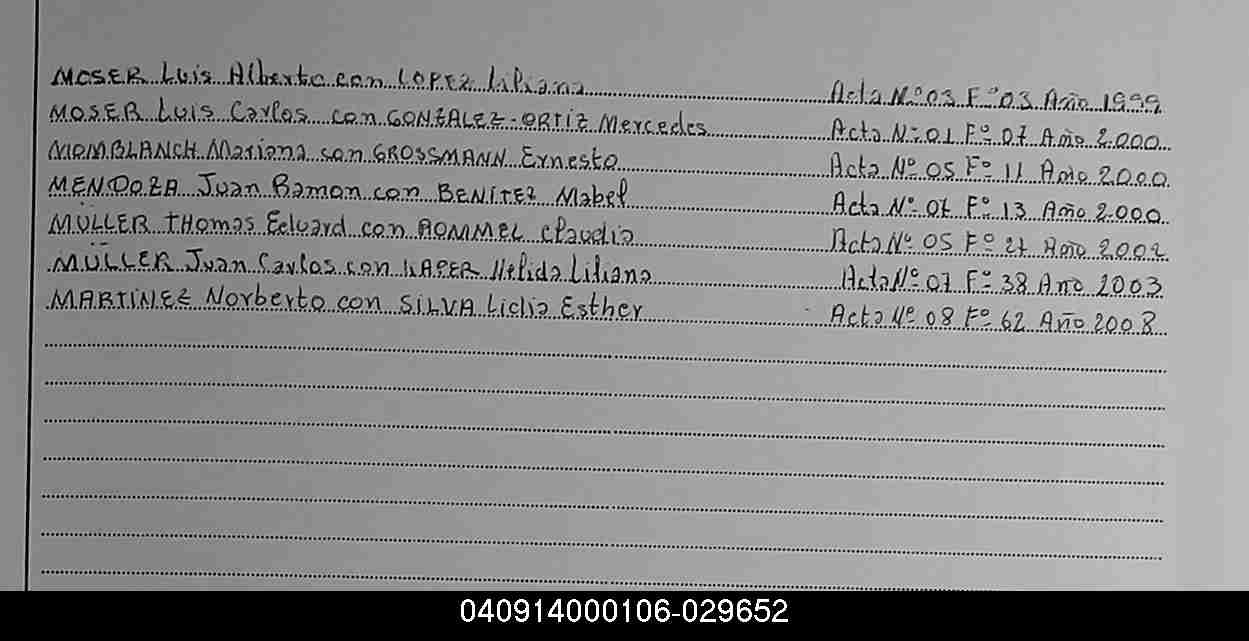 MOSER Luis Alberto con LOPEZ Liliana Acta Nº 03 Fº 03 Año 1999
MOSER Luis Carlos con GONZALEZ-ORTIZ Mercedes Acta Nº 01 Fº 07 Año 2.000
MOMBLANCH Mariana con GROSSMANN Ernesto Acta Nº 05 Fº 11 Año 2000
MENDOZA Juan Ramon con BENITEZ Mabel Acta Nº Fº 13 Año 2.000
MÜLLER THomas Eduard con ROMMEL Claudia Acta Nº 05 Fº 21 Año 2002
MÜLLER Juan Carlos con Nelida Liliana Acta Nº 07 Fº 38 Año 2003
MARTINEZ Norberto con SILVA Lidia Esther Acta Nº 08 Fº 62 Año 2008
040914000106-029652